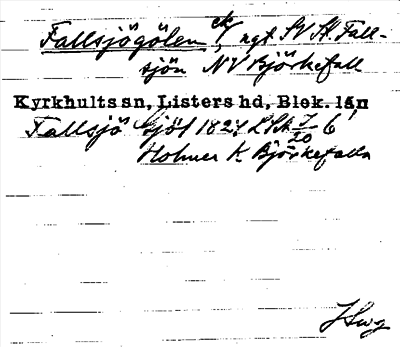 Fallsjögölen ek, ngt. SV St. Fall-
sjön NV Björkefall
Kyrkhults sn, Listers hd, Blek. län
Fallsjö Gjöl 1827 LSA 7/20 6,
Holmer K Björkefalla